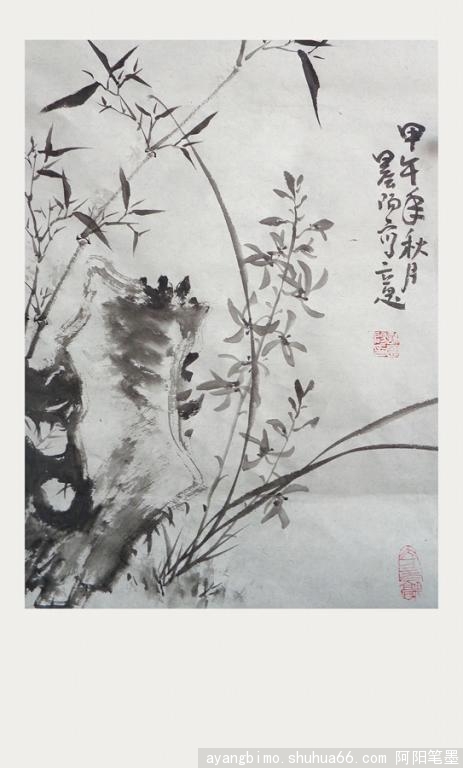 甲午年秋月
晨阳写意
ayangbimo.shuhua66.com 阿阳笔墨